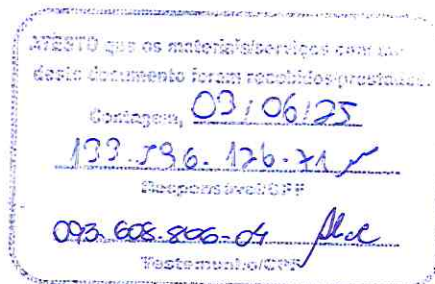 ATESTO que os materiais/serviços com
deste documento foram recebidos/prestados.
Contagem, 03/06/25
133.596.126-71
Responsável/CPF
093.608.806-04
Testemunha/CPF